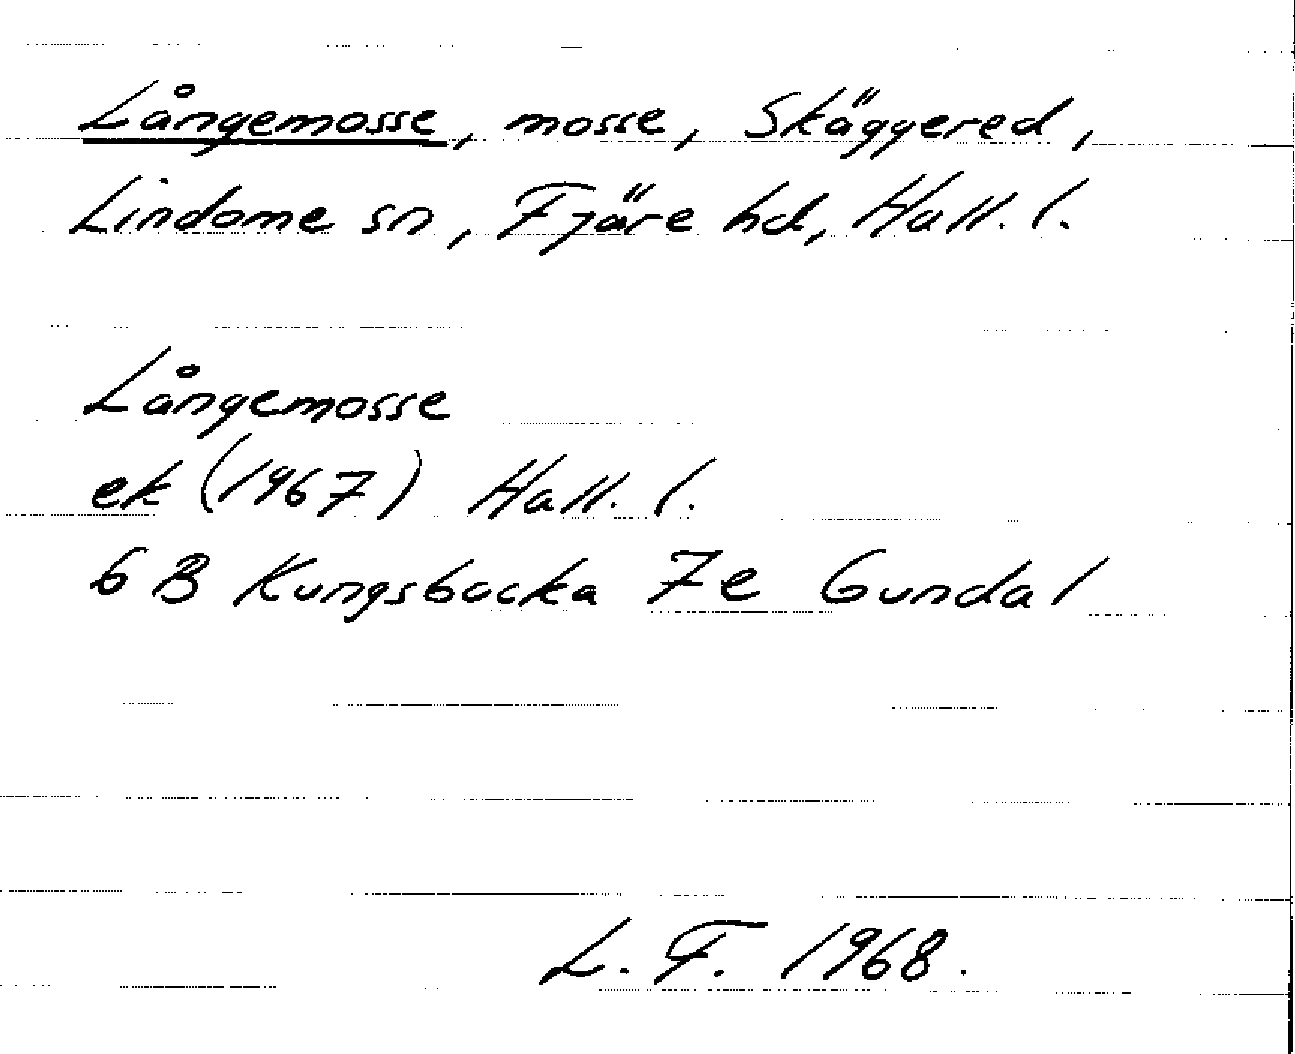 Långemosse, mosse, Skäggered,
Lindome sn, Fjäre hd, Hall. l.
Långemosse
ek (1967) Hall. l.
6 B Kungsbacka 7e Gundal
L. F. 1968.